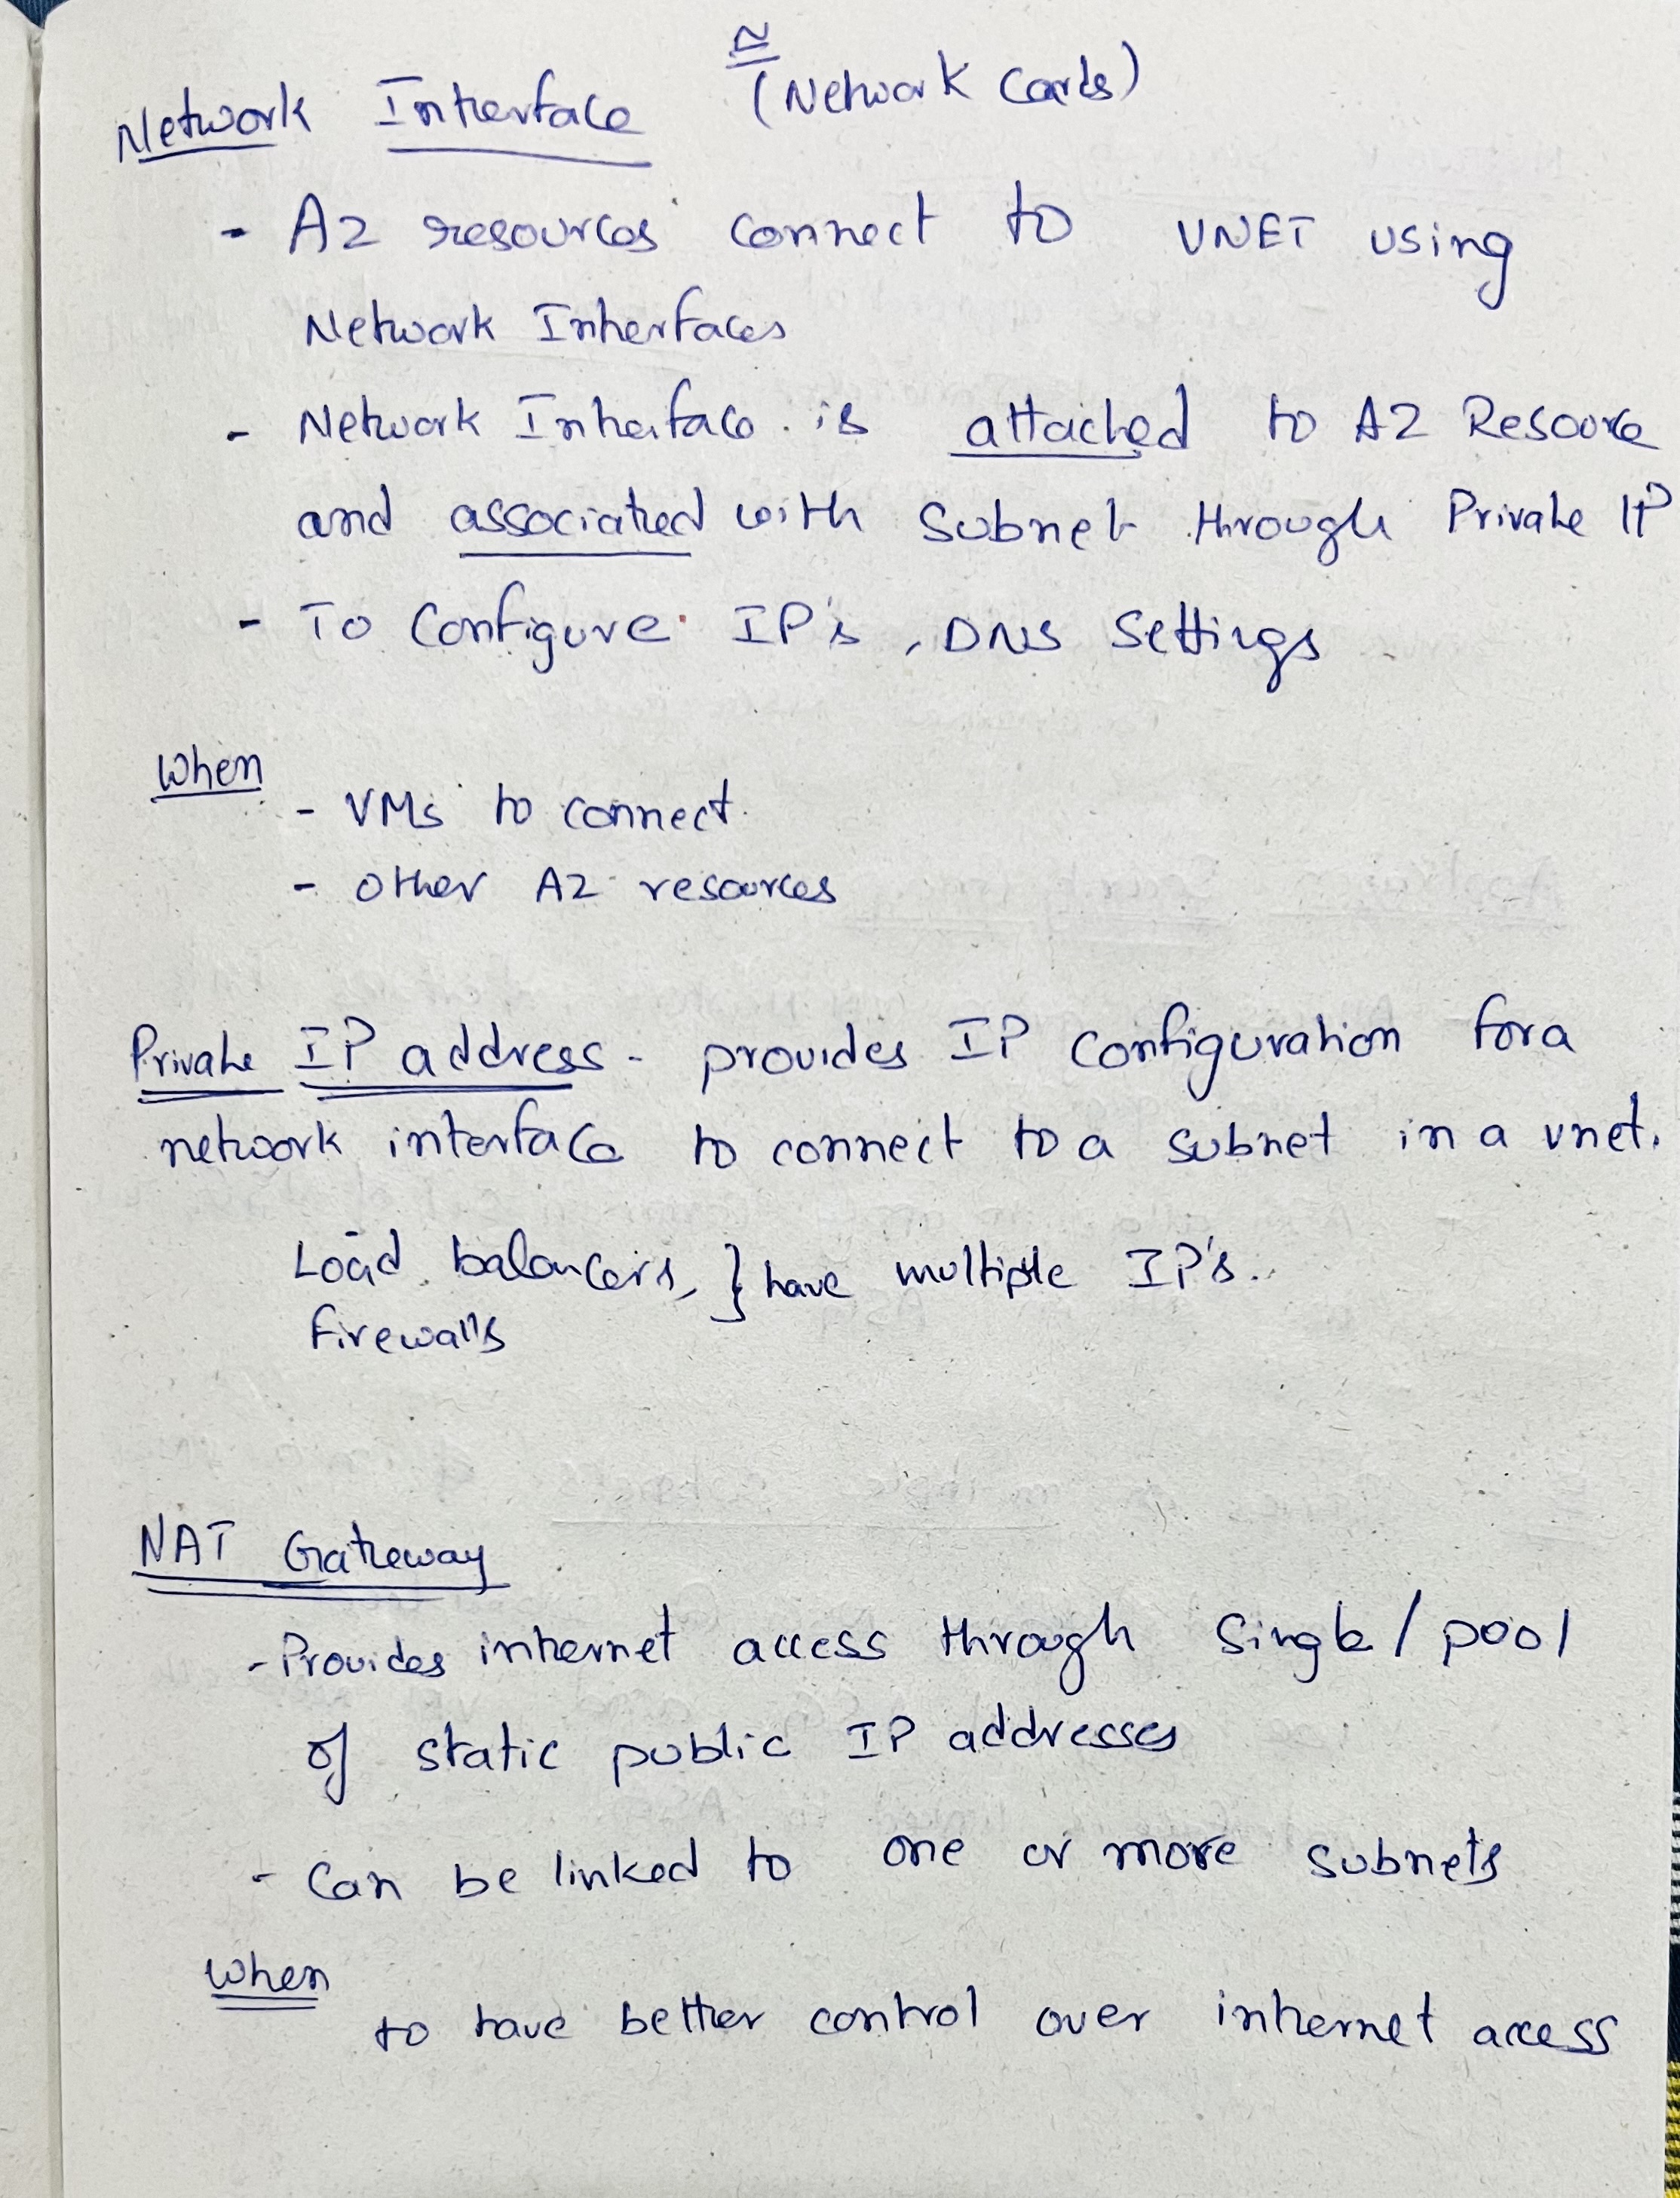 Network Interface ≅ (Network Cards)
- AZ resources connect to VNET using
Network Interfaces
- Network Interface is attached to AZ Resource
and associated with Subnet through Private IP
- To Configure IP's, DNS Settings
When
- VMs to connect
- other AZ resources
Private IP address - provides IP configuration for a
network interface to connect to a subnet in a vnet.
Load balancers, } have multiple IP's.
firewalls
NAT Gateway
- Provides internet access through Single/pool
of static public IP addresses
- Can be linked to one or more subnets
When
to have better control over internet access